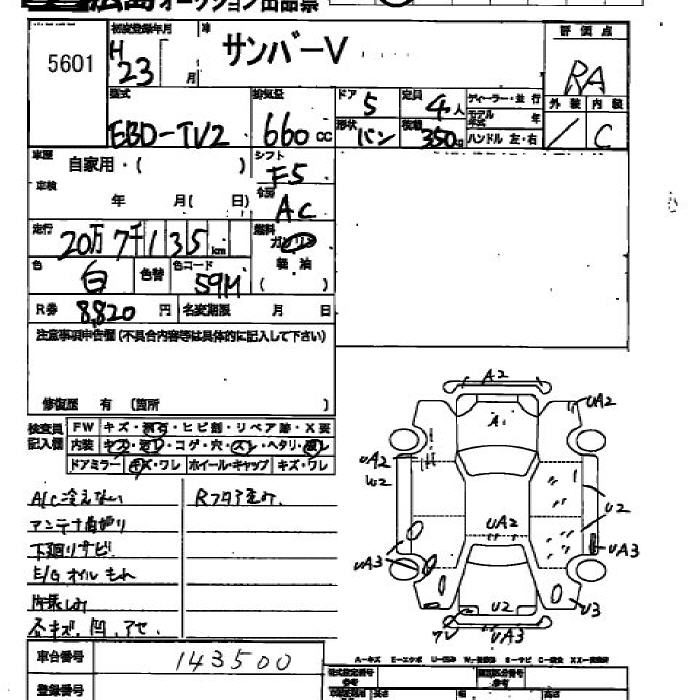 広島オークション出品票
5601
初度登録年月
H23 月
サンバーV
評価点
RA
外装 内装
C
型式
EBD-TV2
排気量
660cc
ドア 5
定員 4人
形状 バン
積載 350
ディーラー・並行
モデル年式 年
ハンドル 左・右
車歴 自家用・( )
シフト F5
車検 年 月( 日)
冷房 AC
走行 20万7千135km
燃料 ガソリン
軽油
( )
色 白
色替
色コード 59M
R券 8,820円
名変期限 月 日
注意事項申告欄(不具合内容等は具体的に記入して下さい)
修復歴 有 (箇所
検査員記入欄
FW キズ・飛石・ヒビ割・リペア跡・X要
内装 キズ・汚れ・コゲ・穴・スレ・ヘタリ・破レ
ドアミラー キズ・ワレ ホイール・キャップ キズ・ワレ
A/C冷えない
Rフタア歪み
アンテナ曲り
下廻りサビ
E/G オイルもれ
内張しみ
各キズ、凹、アセ、
車台番号 143500
登録番号
A2
UA2
A1
UA2
W2
UA2
U2
UA3
UA3
U2
U3
UA3